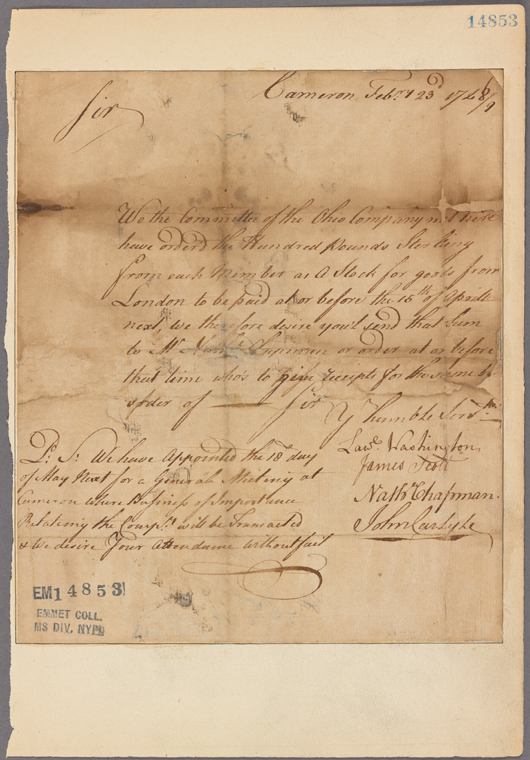 14853
Cameron Febry 23d 1748/9
Sir
We the Committee of the Ohio Company met here
have order'd the Hundred Pounds Sterling
from each Member as A Stock for goods from
London to be paid at or before the 15th of Aprill
next, we therefore desire you'l send that Sum
to Mr Nathl Chapman or order at or before
that time who's to give receipts for the same by
order of — Sir
Yr humble Servts
Lawe Washington
James Scott
Nathl Chapman
John Carlyle
P: S: We have Appointed the 18th day
of May Next for a General Meeting at
Cameron where Business of Importance
Relateing the Compy will be Transacted
& We desire Your Attendance without fail
EM14853
EMMET COLL.
MS DIV. NYPL